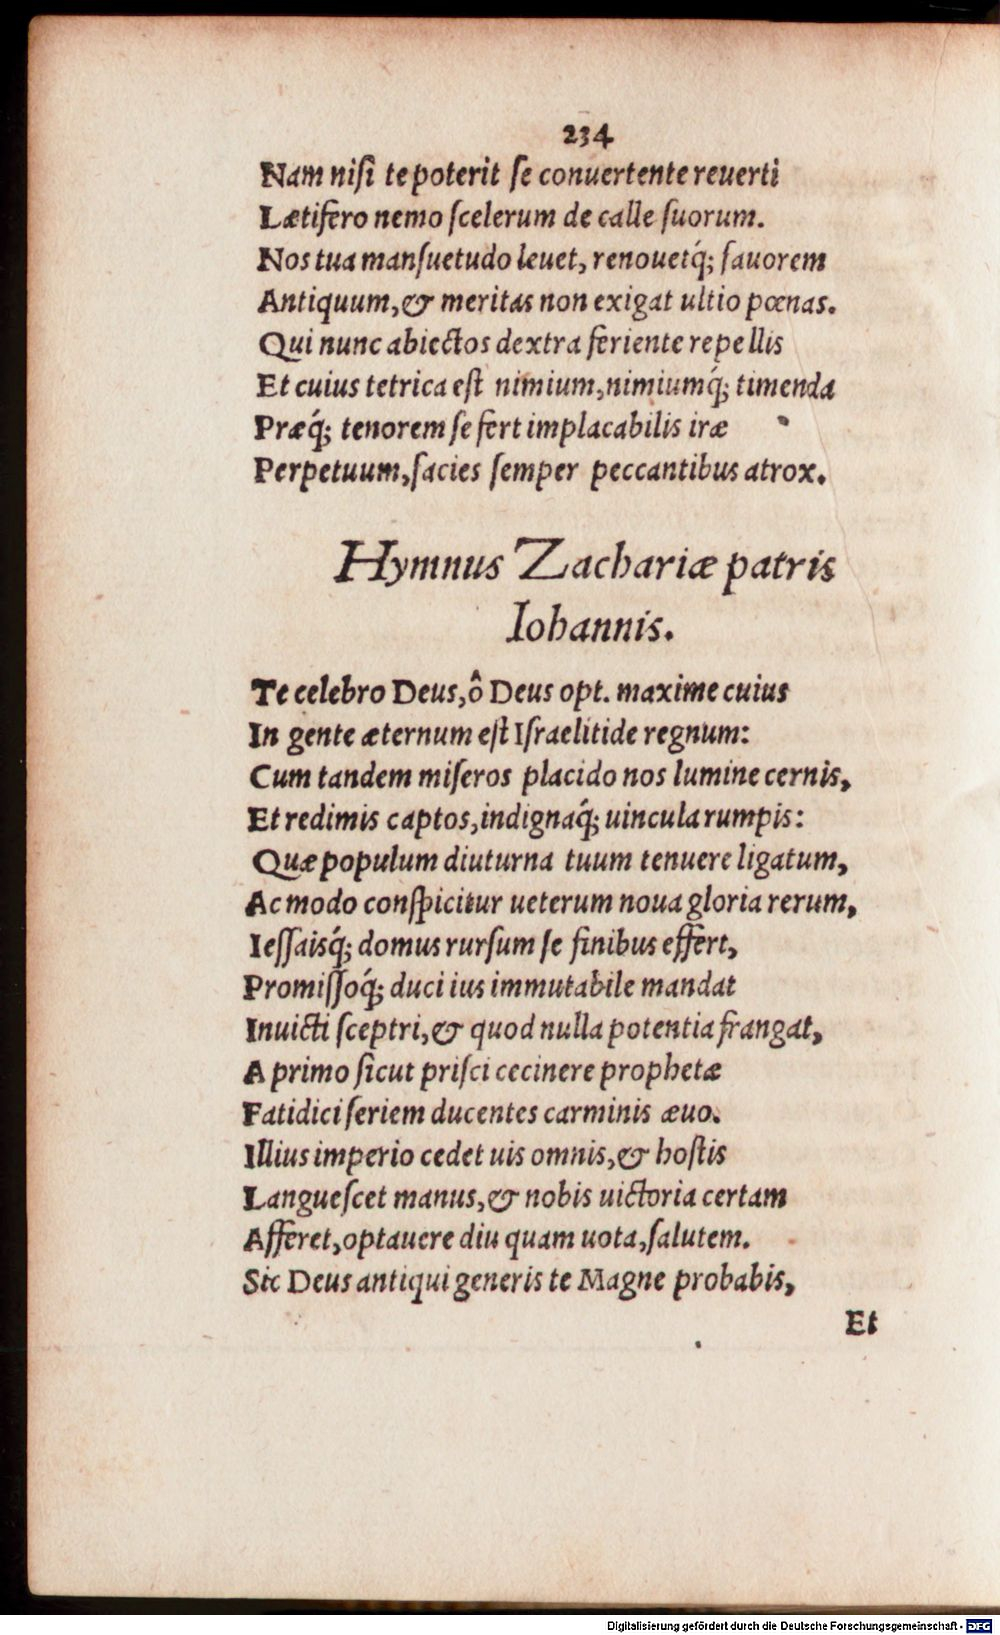 234
Nam niſi te poterit ſe conuertente reuerti
Lætifero nemo ſcelerum de calle ſuorum.
Nos tua manſuetudo leuet, renouetq́; fauorem
Antiquum, & meritas non exigat ultio pœnas.
Qui nunc abiectos dextra feriente repellis
Et cuius tetrica eſt nimium, nimiumq́; timenda
Præq́; tenorem ſe fert implacabilis iræ
Perpetuum, facies ſemper peccantibus atrox.
Hymnus Zachariæ patris
Iohannis.
Te celebro Deus, ô Deus opt. maxime cuius
In gente æternum eſt Iſraelitide regnum:
Cum tandem miſeros placido nos lumine cernis,
Et redimis captos, indignaq́; uincula rumpis:
Quæ populum diuturna tuum tenuere ligatum,
Ac modo conſpicitur ueterum noua gloria rerum,
Ieſſaisq́; domus rurſum ſe finibus effert,
Promiſſoq́; duci ius immutabile mandat
Inuicti ſceptri, & quod nulla potentia frangat,
A primo ſicut priſci cecinere prophetæ
Fatidici ſeriem ducentes carminis æuo.
Illius imperio cedet uis omnis, & hoſtis
Langueſcet manus, & nobis uictoria certam
Afferet, optauere diu quam uota, ſalutem.
Sic Deus antiqui generis te Magne probabis,
Et
Digitalisierung gefördert durch die Deutsche Forschungsgemeinschaft - DFG